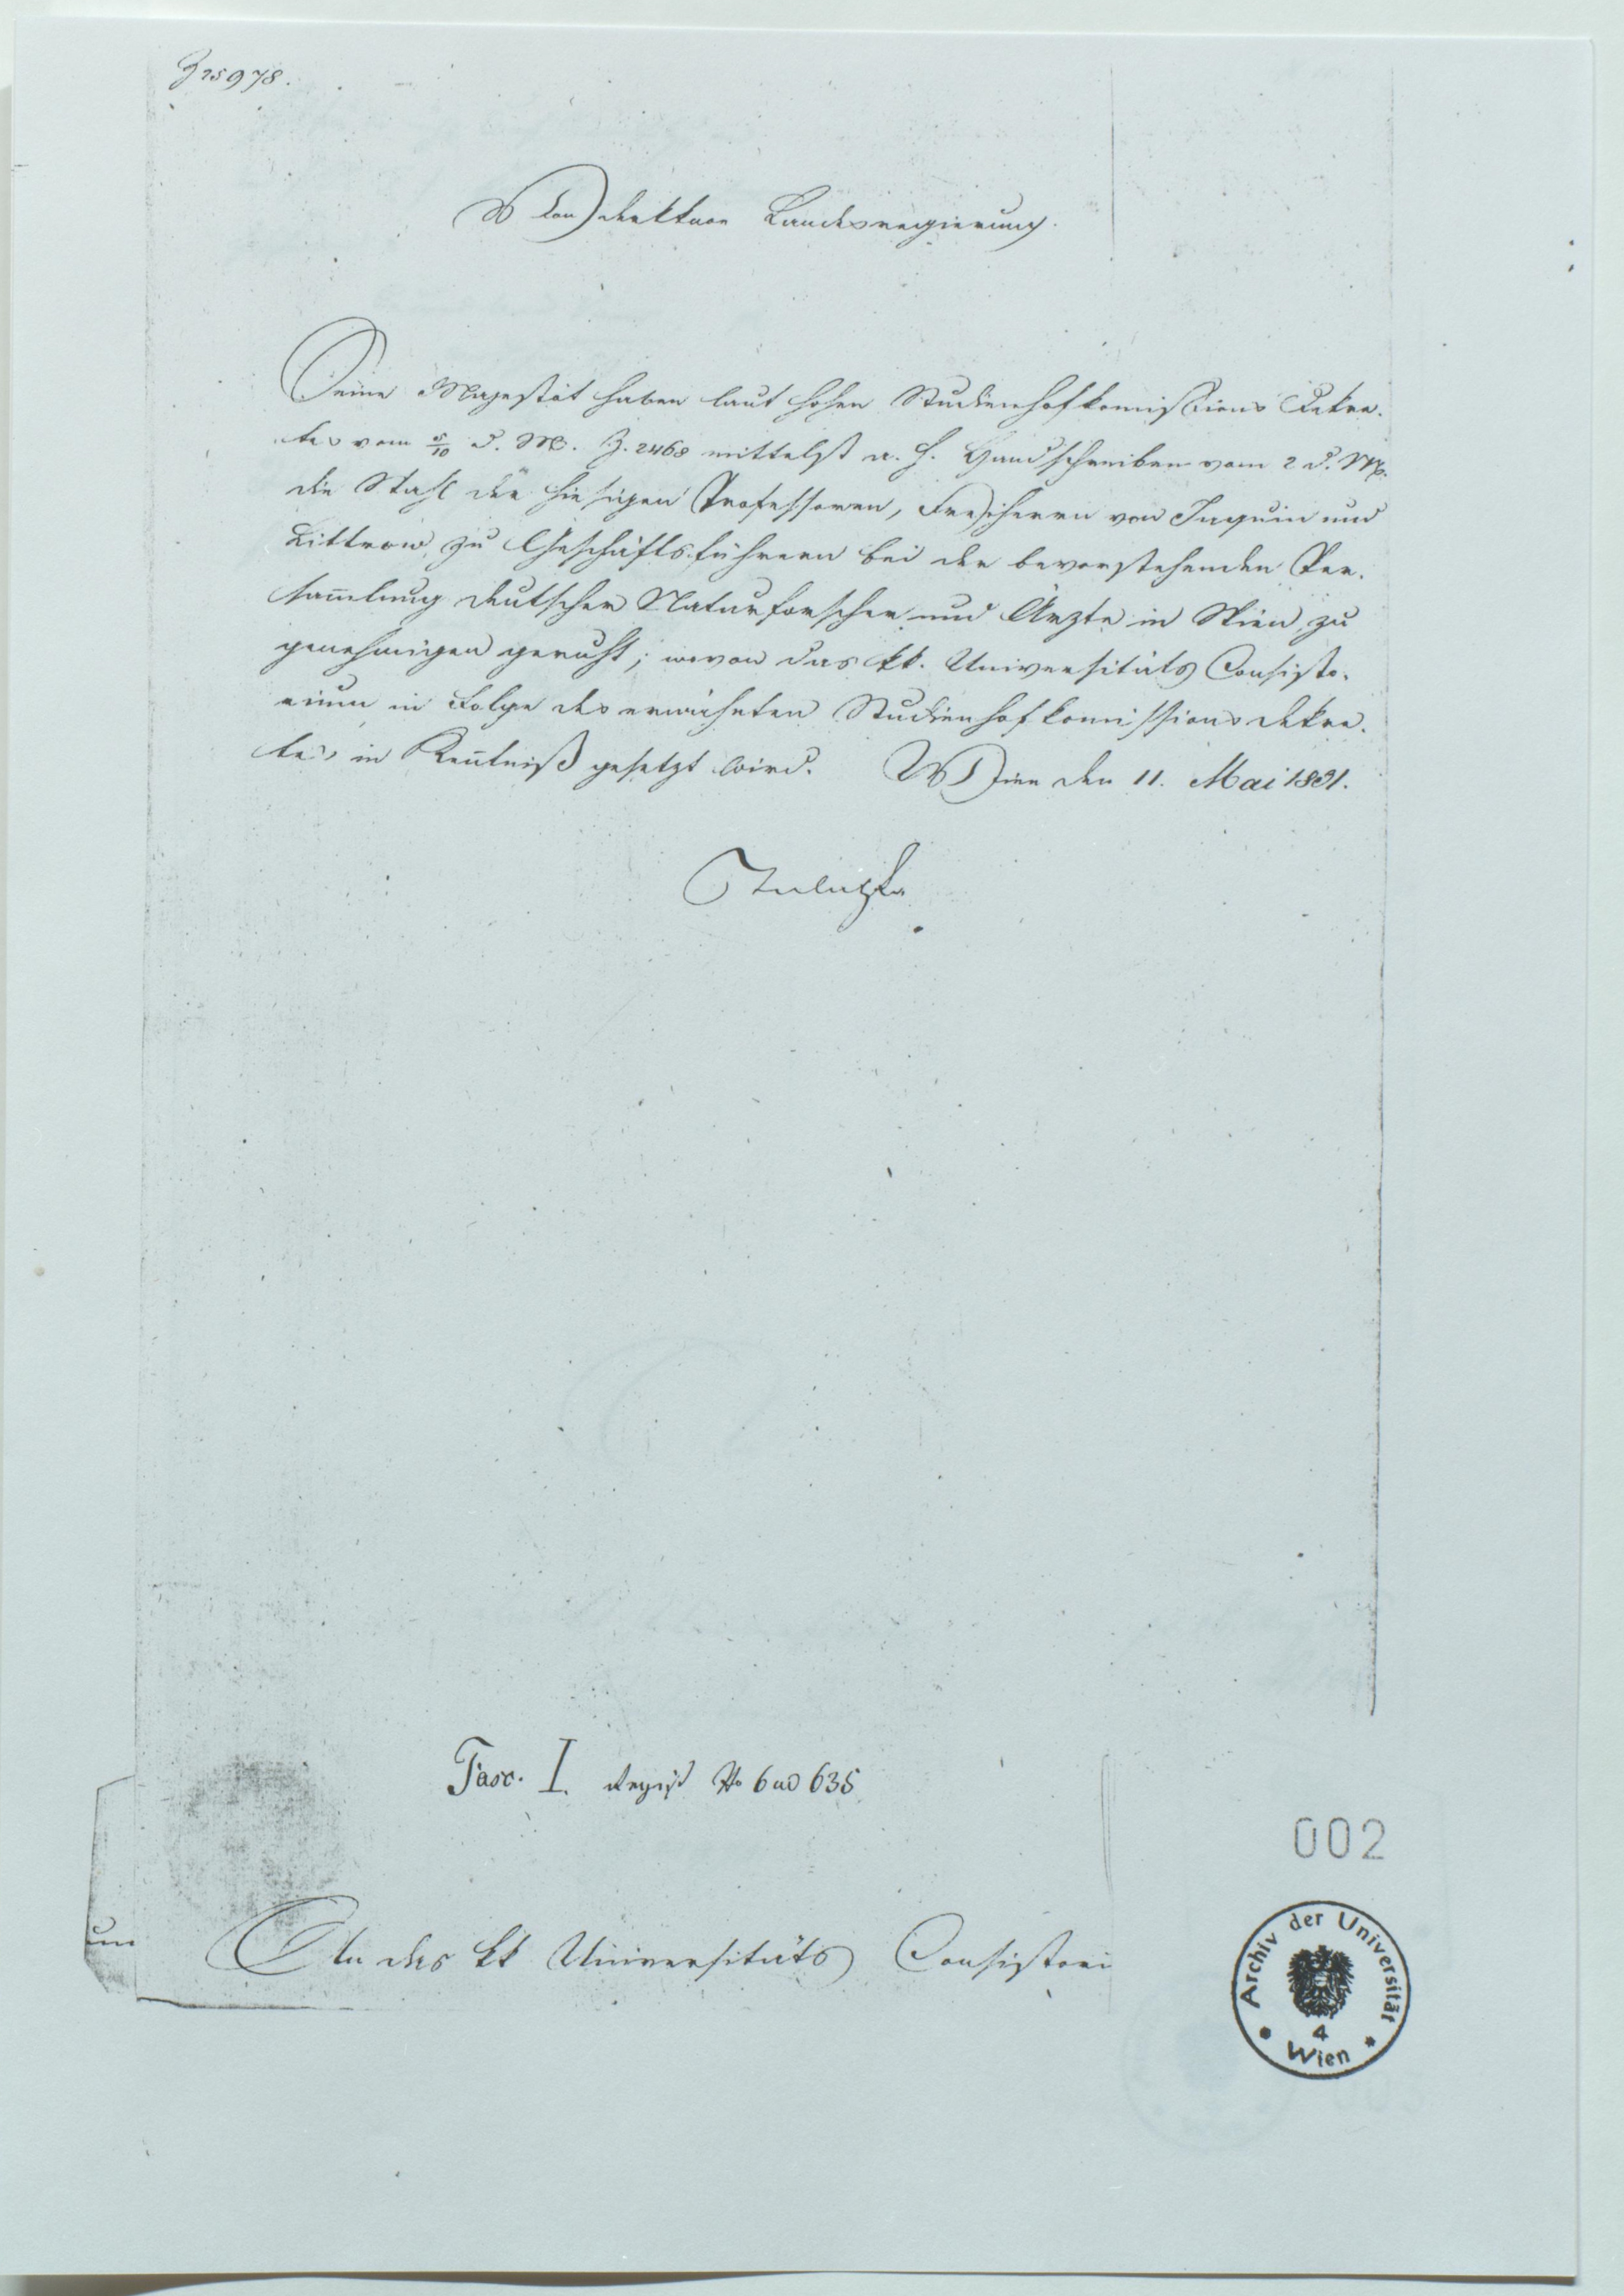 Z 25978.
Von der k k n oe Landesregierung.
Seine Majestät haben laut hohen Studienhofkommissions Dekre-
tes vom 5/10 d. M. Z. 2468 mittelst a. h. Handschreiben vom 2 d. M.
die Wahl der hiesigen Professoren, Freiherrn von Jaquin und
Littrow, zu Geschäftsführern bei der bevorstehenden Ver-
sam̅lung deutscher Naturforscher und Ärzte in Wien zu
genehmigen geruht; wovon das kk. Universitäts Consisto-
rium in Folge des erwähnten Studienhofkommissionsdekre-
tes in Ken̅tniß gesetzt wird. Wien den 11. Mai 1831.
Fasc. I. Regist No 6 ad 635
002
An das kk Universitäts Consistori
um
Archiv der Universität
4
Wien